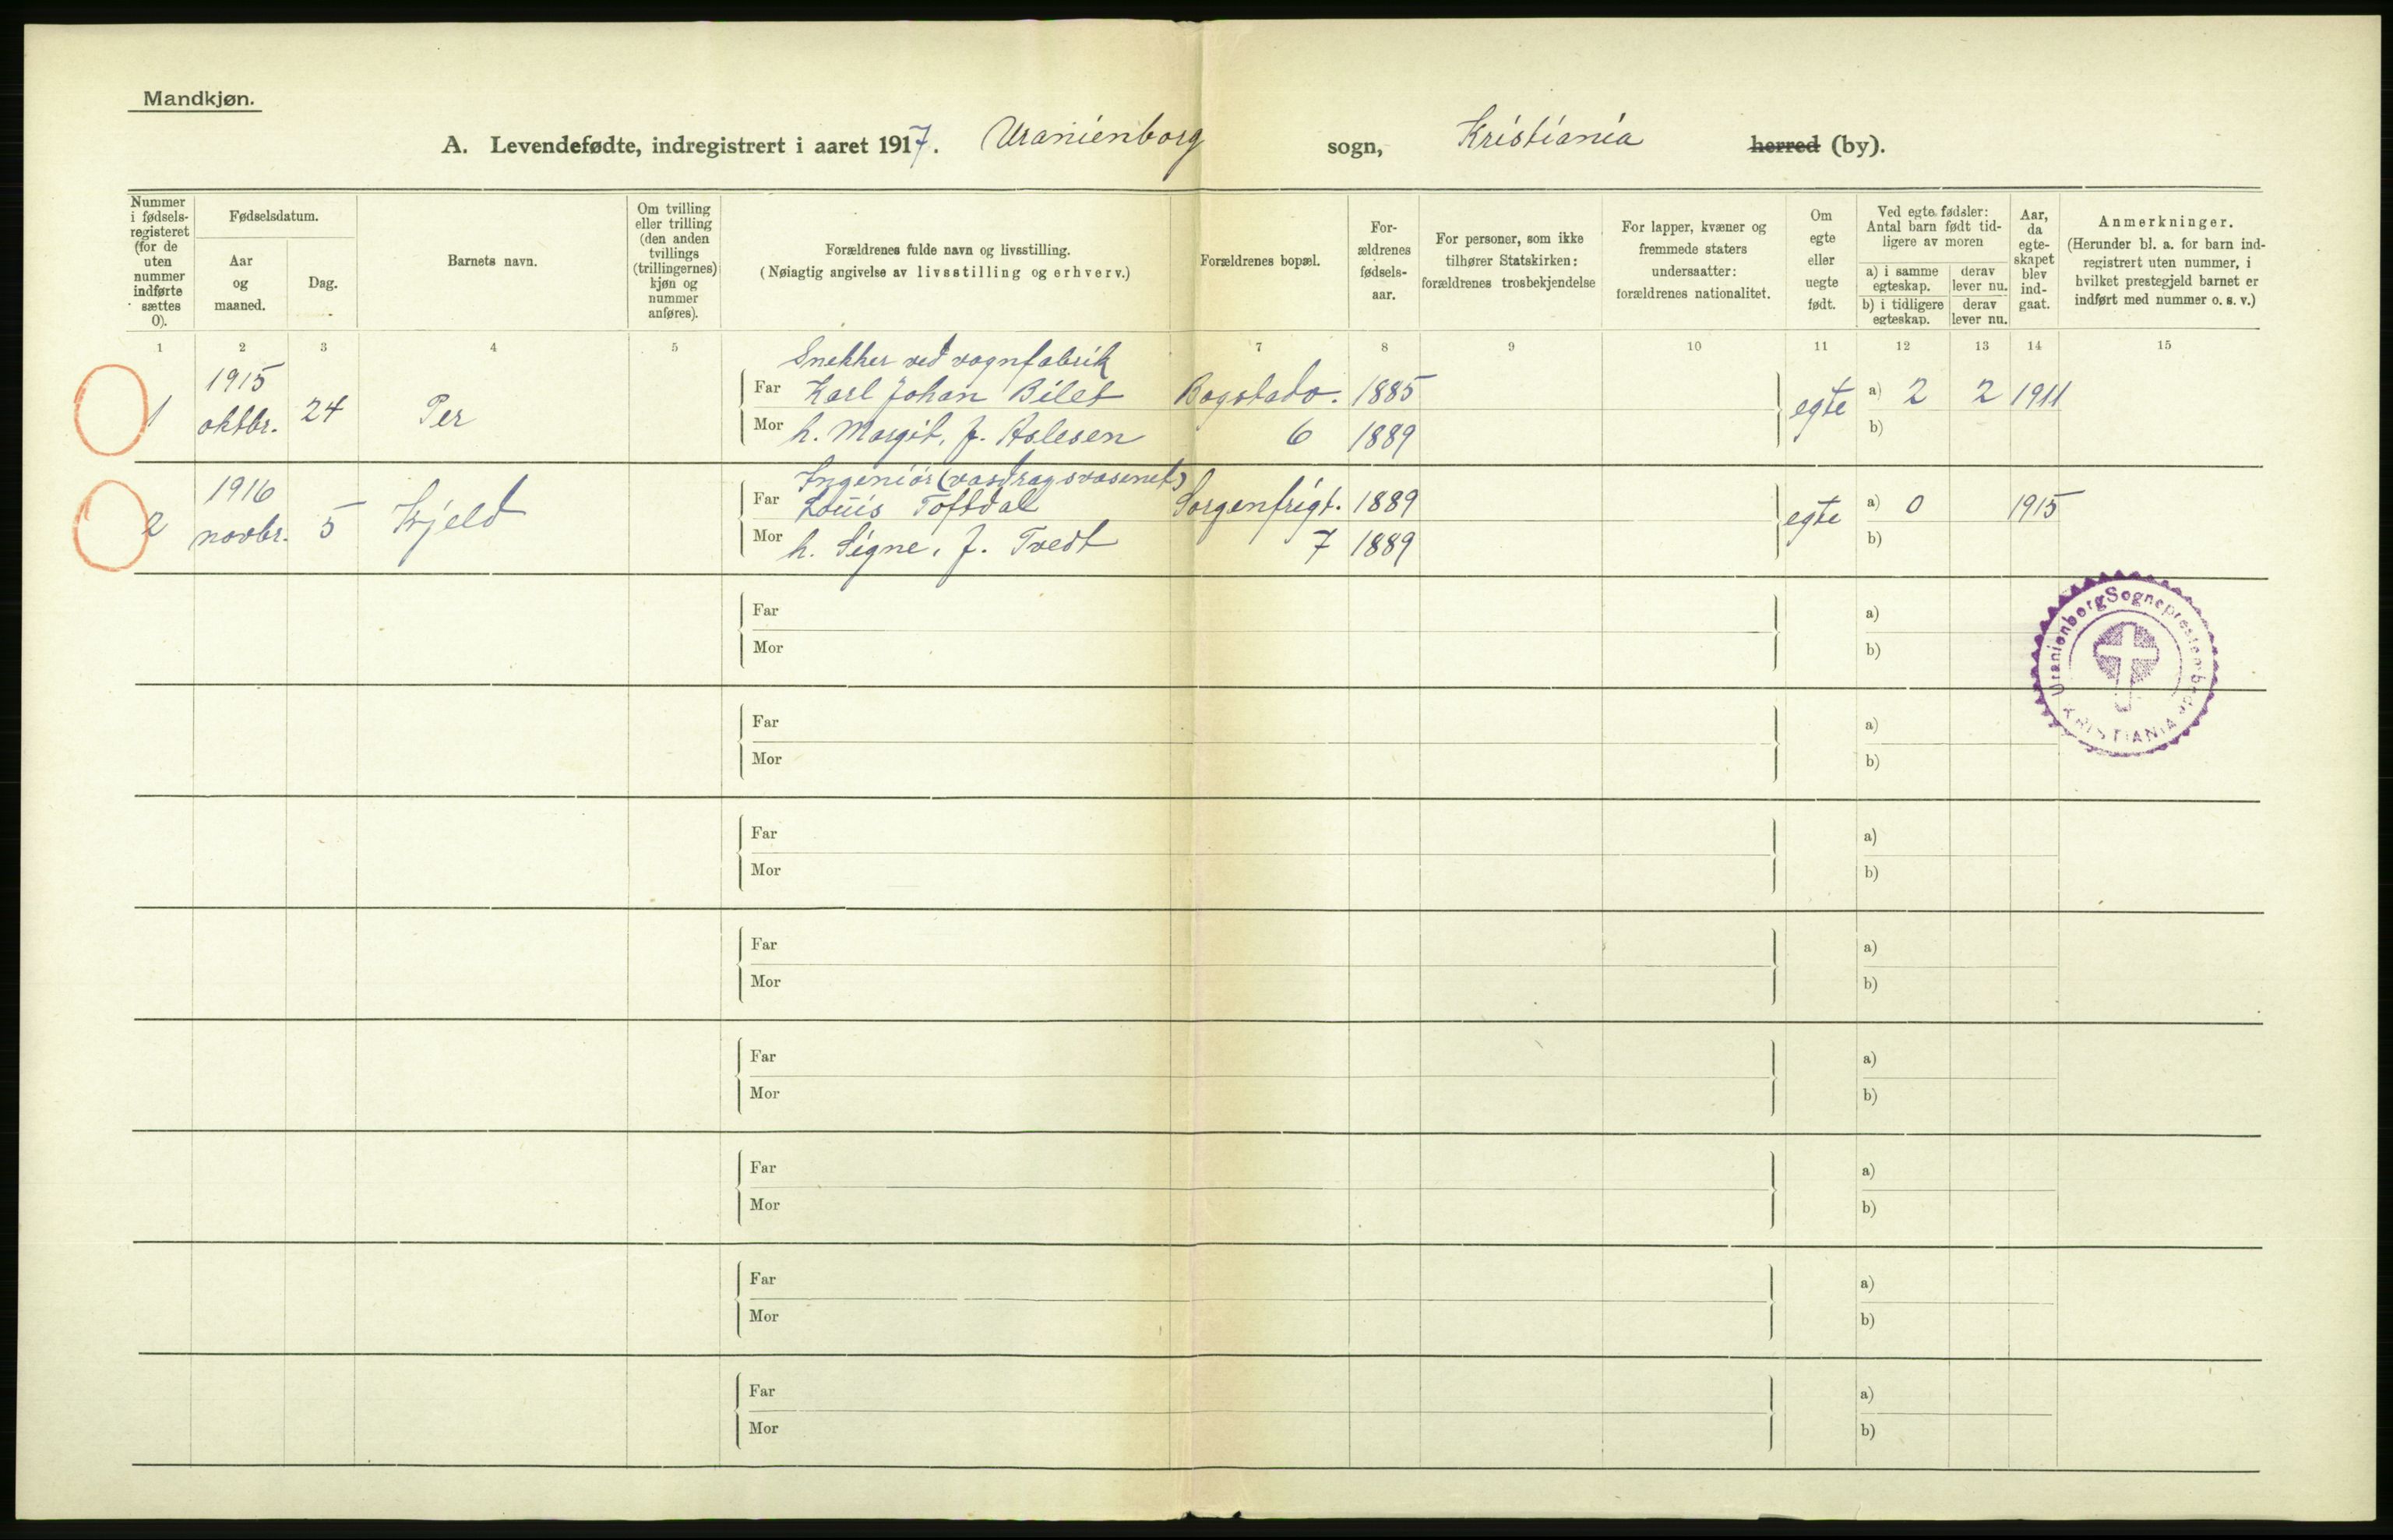 Mandkjøn.
A. Levendefødte, indregistrert i aaret 1917. Uranienborg sogn, Kristiania herred (by).
Nummer i fødsels-registeret (for de uten nummer indførte sættes 0).
Fødselsdatum.
Aar og maaned.
Dag.
Barnets navn.
Om tvilling eller trilling (den anden tvillings (trillingernes) kjøn og nummer anføres).
Forældrenes fulde navn og livsstilling.
(Nøiagtig angivelse av livsstilling og erhverv.)
Forældrenes bopæl.
For-ældrenes fødsels-aar.
For personer, som ikke tilhører Statskirken: forældrenes trosbekjendelse
For lapper, kvæner og fremmede staters undersaatter: forældrenes nationalitet.
Om egte eller uegte født.
Ved egte fødsler: Antal barn født tid-ligere av moren
a) i samme egteskap. derav lever nu.
b) i tidligere egteskap. derav lever nu.
Aar, da egte-skapet blev ind-gaat.
Anmerkninger.
(Herunder bl. a. for barn ind-registrert uten nummer, i hvilket prestegjeld barnet er indført med nummer o. s. v.)
1 2 3 4 5 7 8 9 10 11 12 13 14 15
Snekker ved vognfabrik
1 1915 oktbr. 24 Per Far Karl Johan Bilet Bogstadv. 1885 egte a) 2 2 1911
Mor h. Margit, f. Aslesen 6 1889 b)
Ingeniör (vasdragsvæsenet)
2 1916 novbr. 5 Kjeld Far Louis Toftdal Sorgenfrigt. 1889 egte a) 0 1915
Mor h. Signe, f. Tvedt 7 1889 b)
Uranienborg Sogneprestembede
KRISTIANIA
Far a)
Mor b)
Far a)
Mor b)
Far a)
Mor b)
Far a)
Mor b)
Far a)
Mor b)
Far a)
Mor b)
Far a)
Mor b)
Far a)
Mor b)